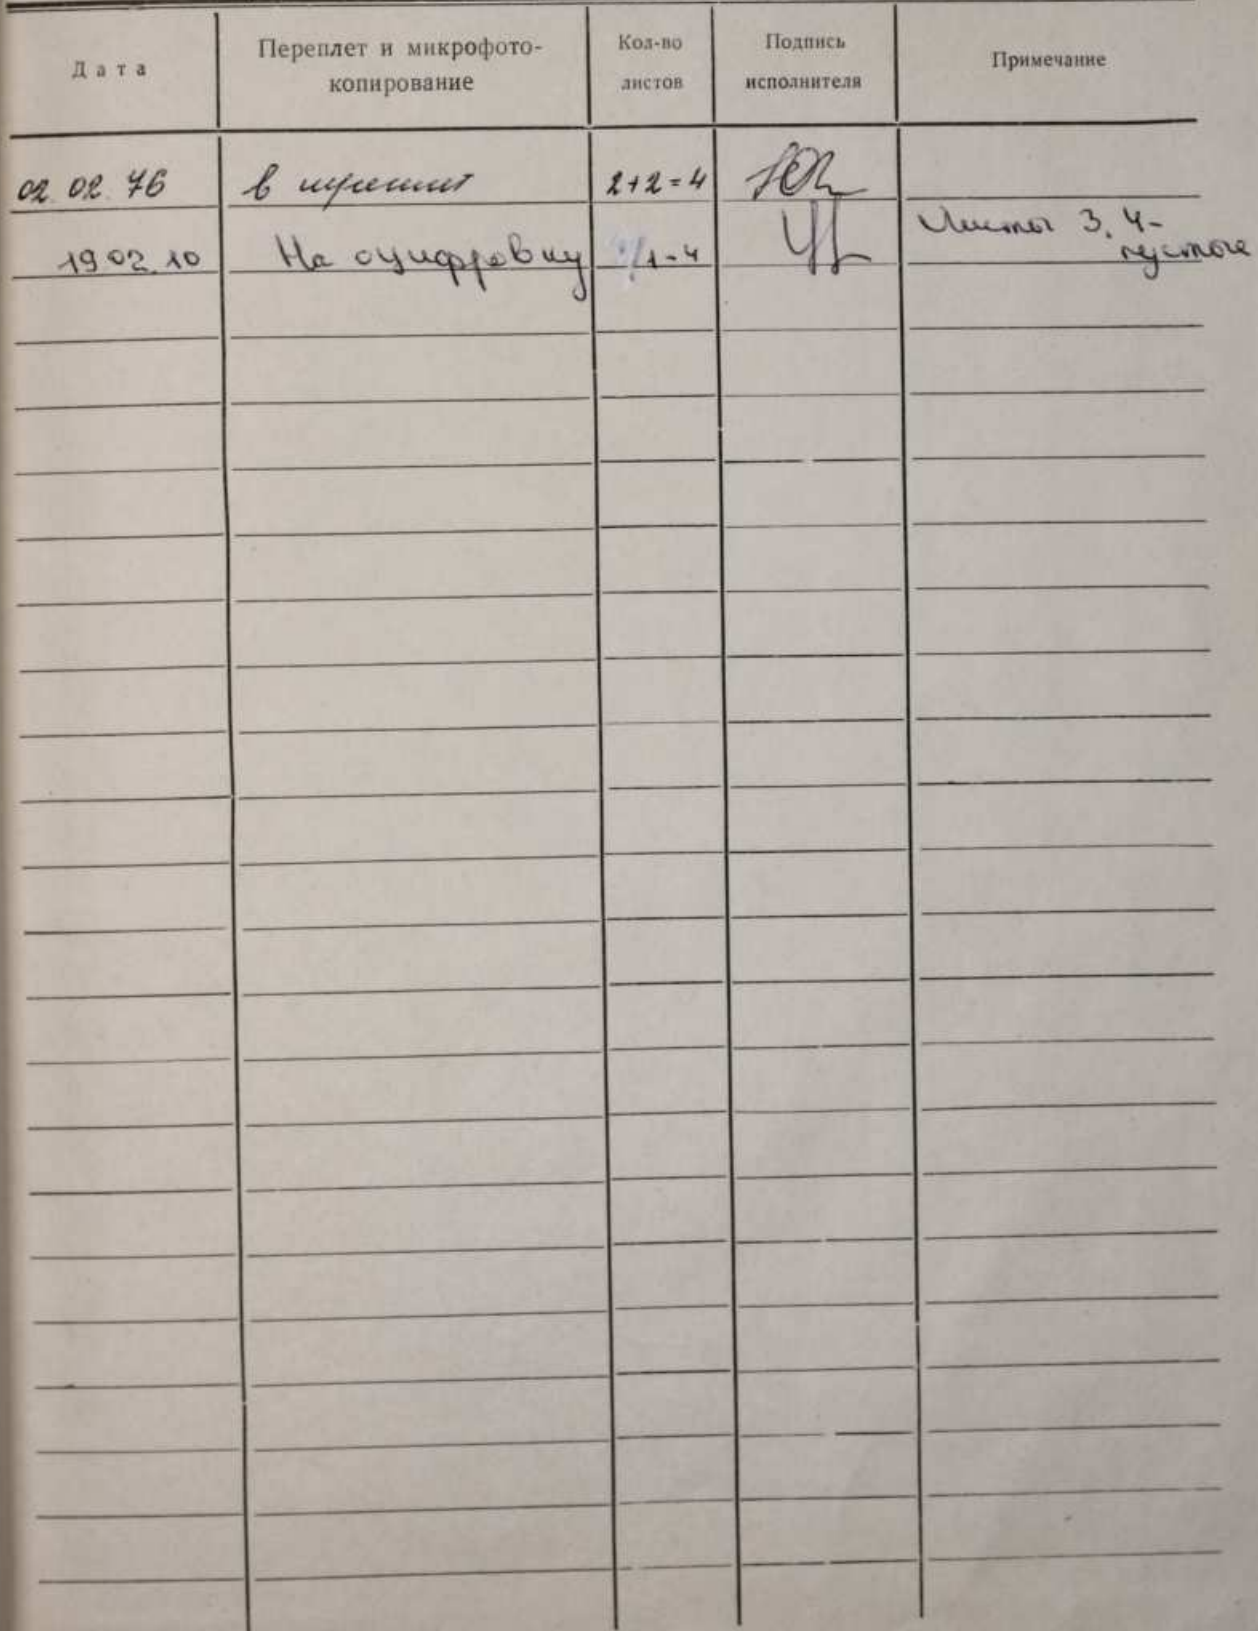 Дата
Переплет и микрофото-
копирование
Кол-во
листов
Подпись
исполнителя
Примечание
02 02. 76 в 2+2=4
19 02. 10 На оцифровку 1-4 Листы 3, 4-
пустые